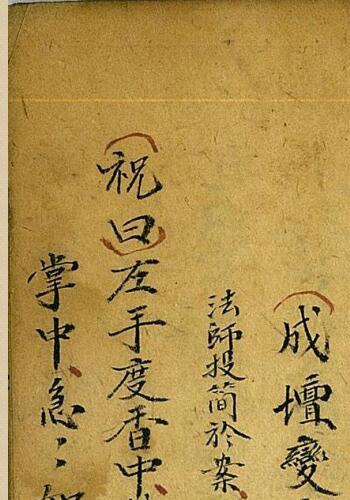 成壇變
法師投簡於案
祝曰左手度香中
掌中急〻